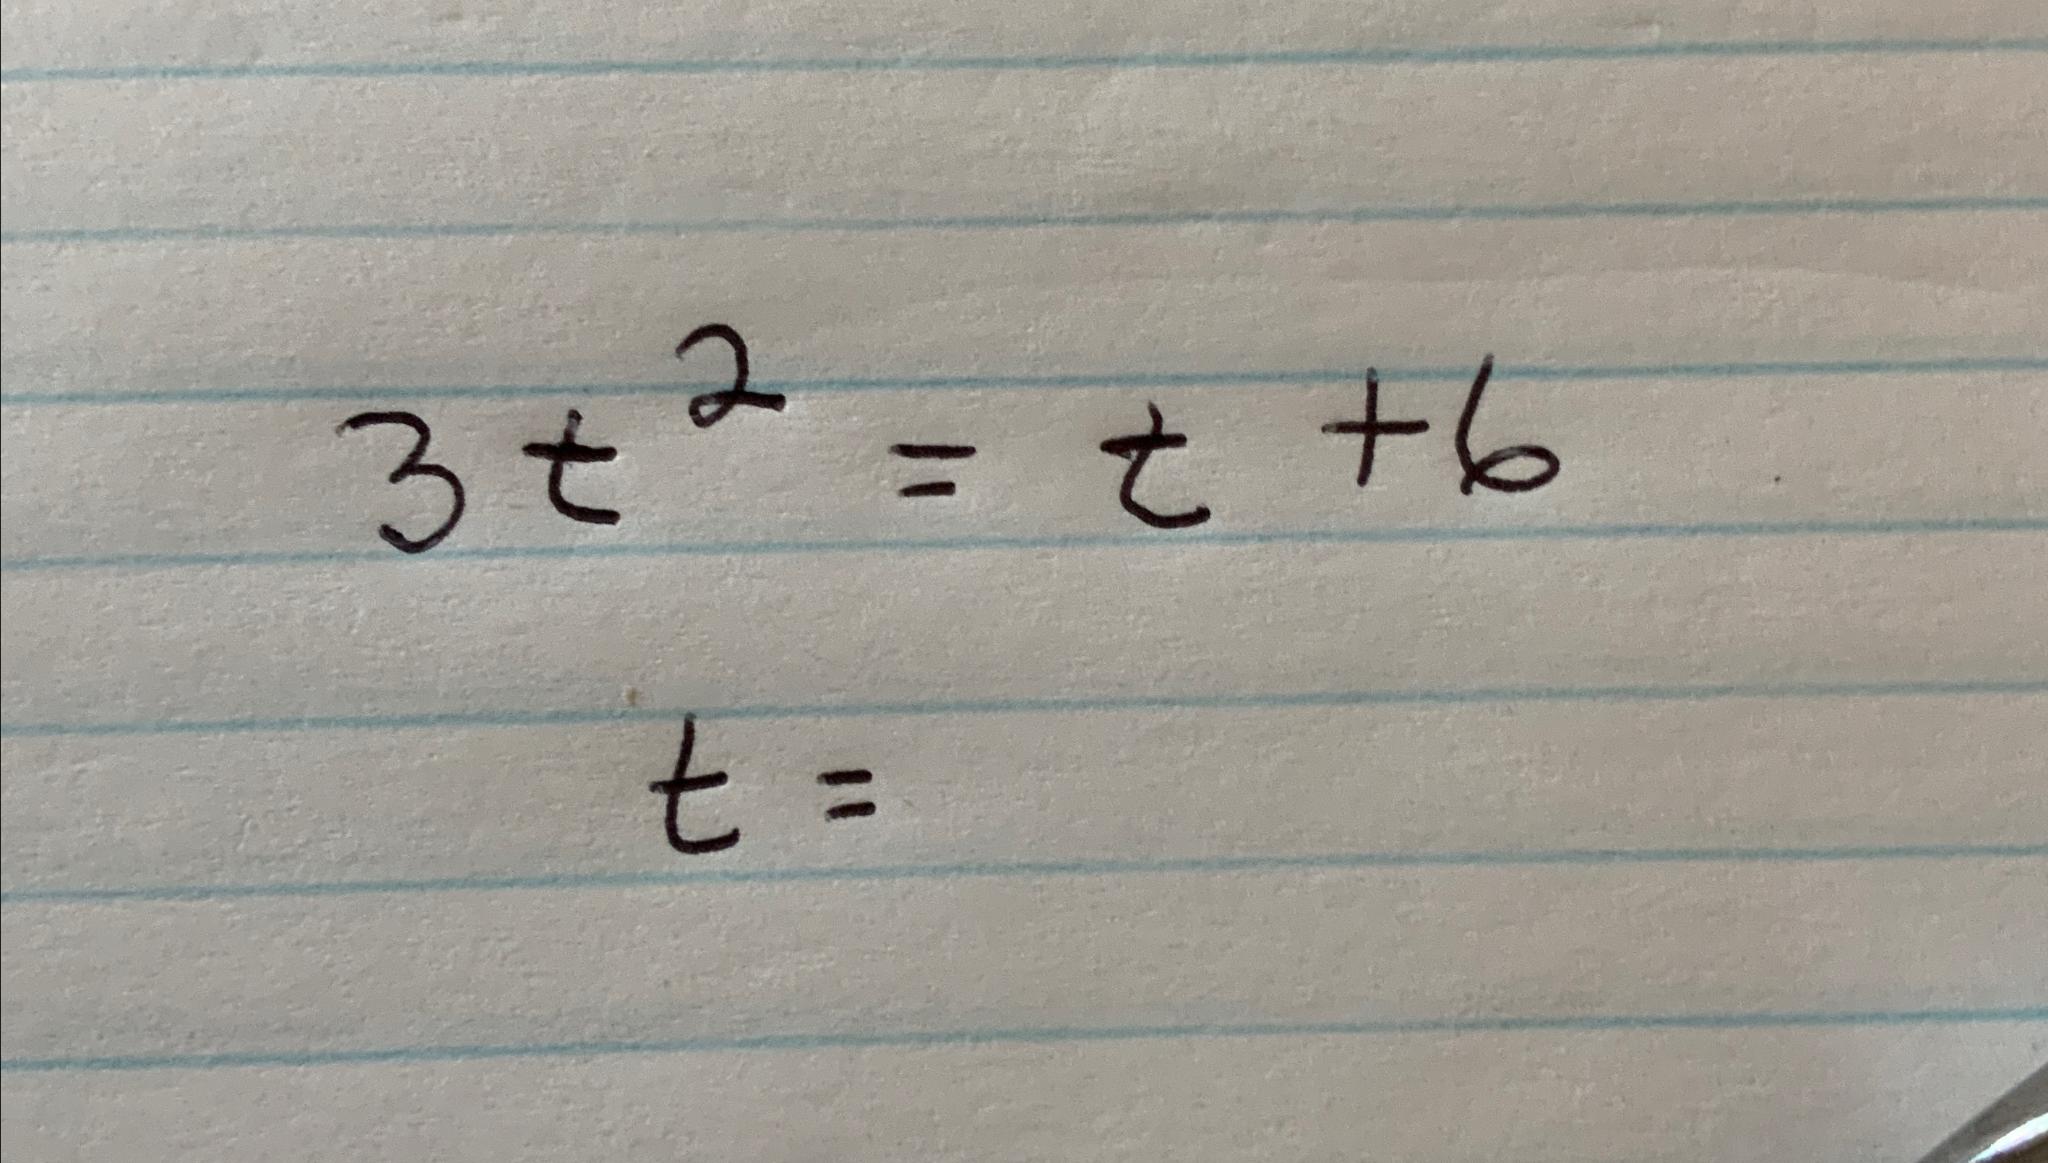 3t² = t + 6
t =